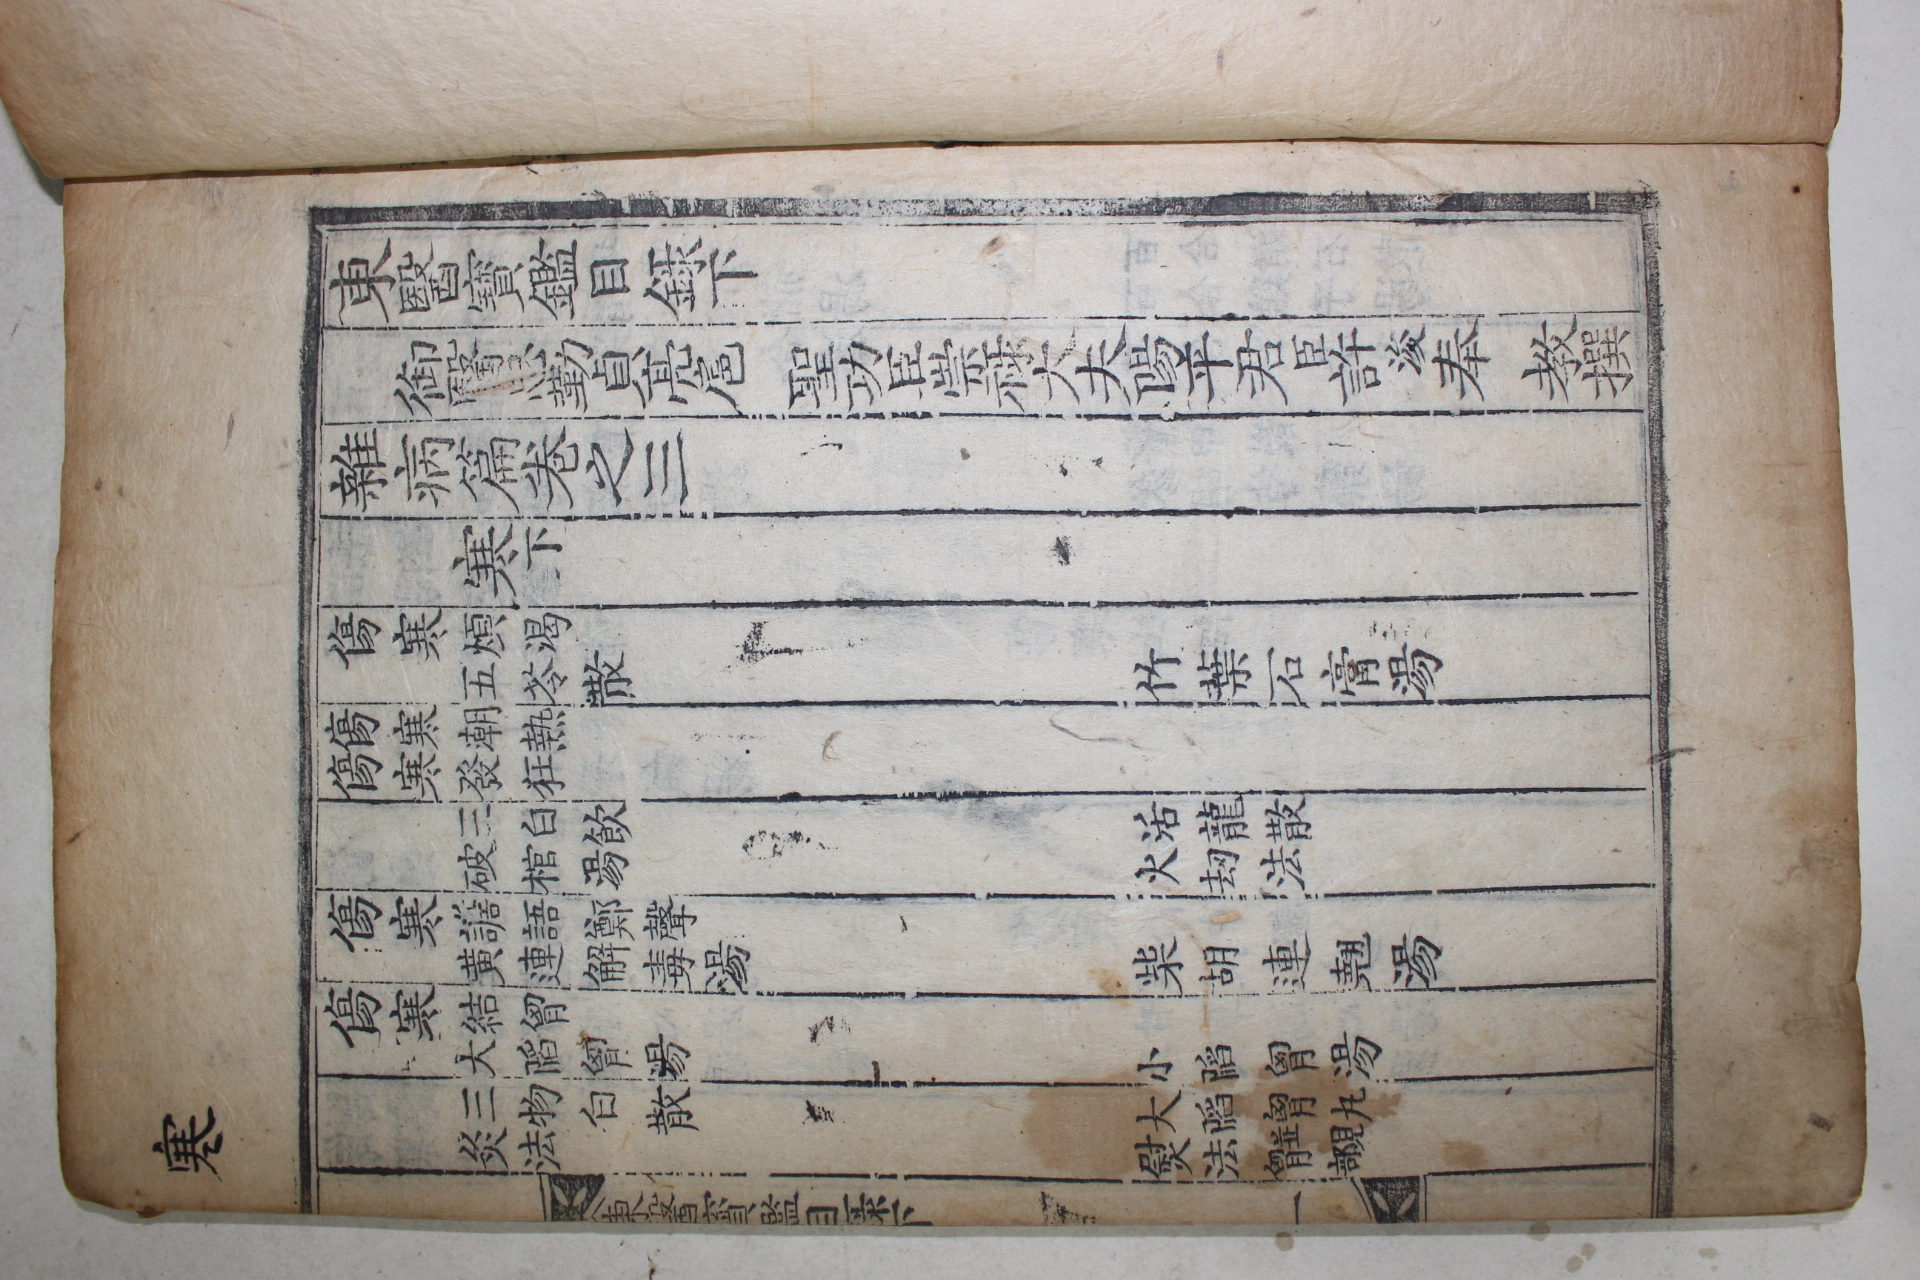 東醫寶鑑目錄下
御醫忠勤貞亮扈 聖功臣崇祿大夫陽平君臣許浚奉 教撰
雜病篇卷之三
寒下
傷寒煩渴
五苓散 竹葉石膏湯
傷寒潮熱
傷寒發狂
三白飲 活龍散
破棺湯 火劫法
傷寒譫語鄭聲
黃連解毒湯 柴胡連翹湯
傷寒結胷
大陷胷湯 小陷胷湯
三物白散 大陷胷丸
灸法 熨法
東醫寶鑑目錄下 一
寒